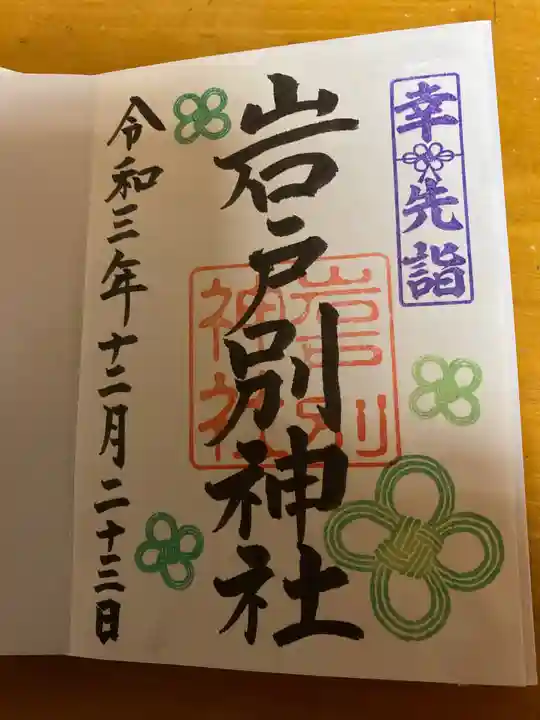 幸先詣
岩戸別神社
岩戸別
神社
令和三年十二月二十三日